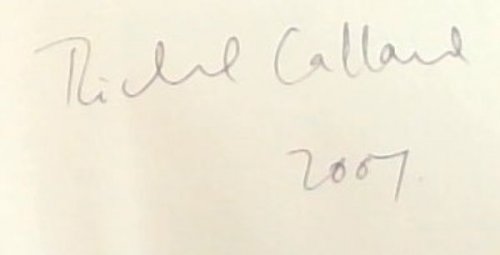 Richard Calland
2007.